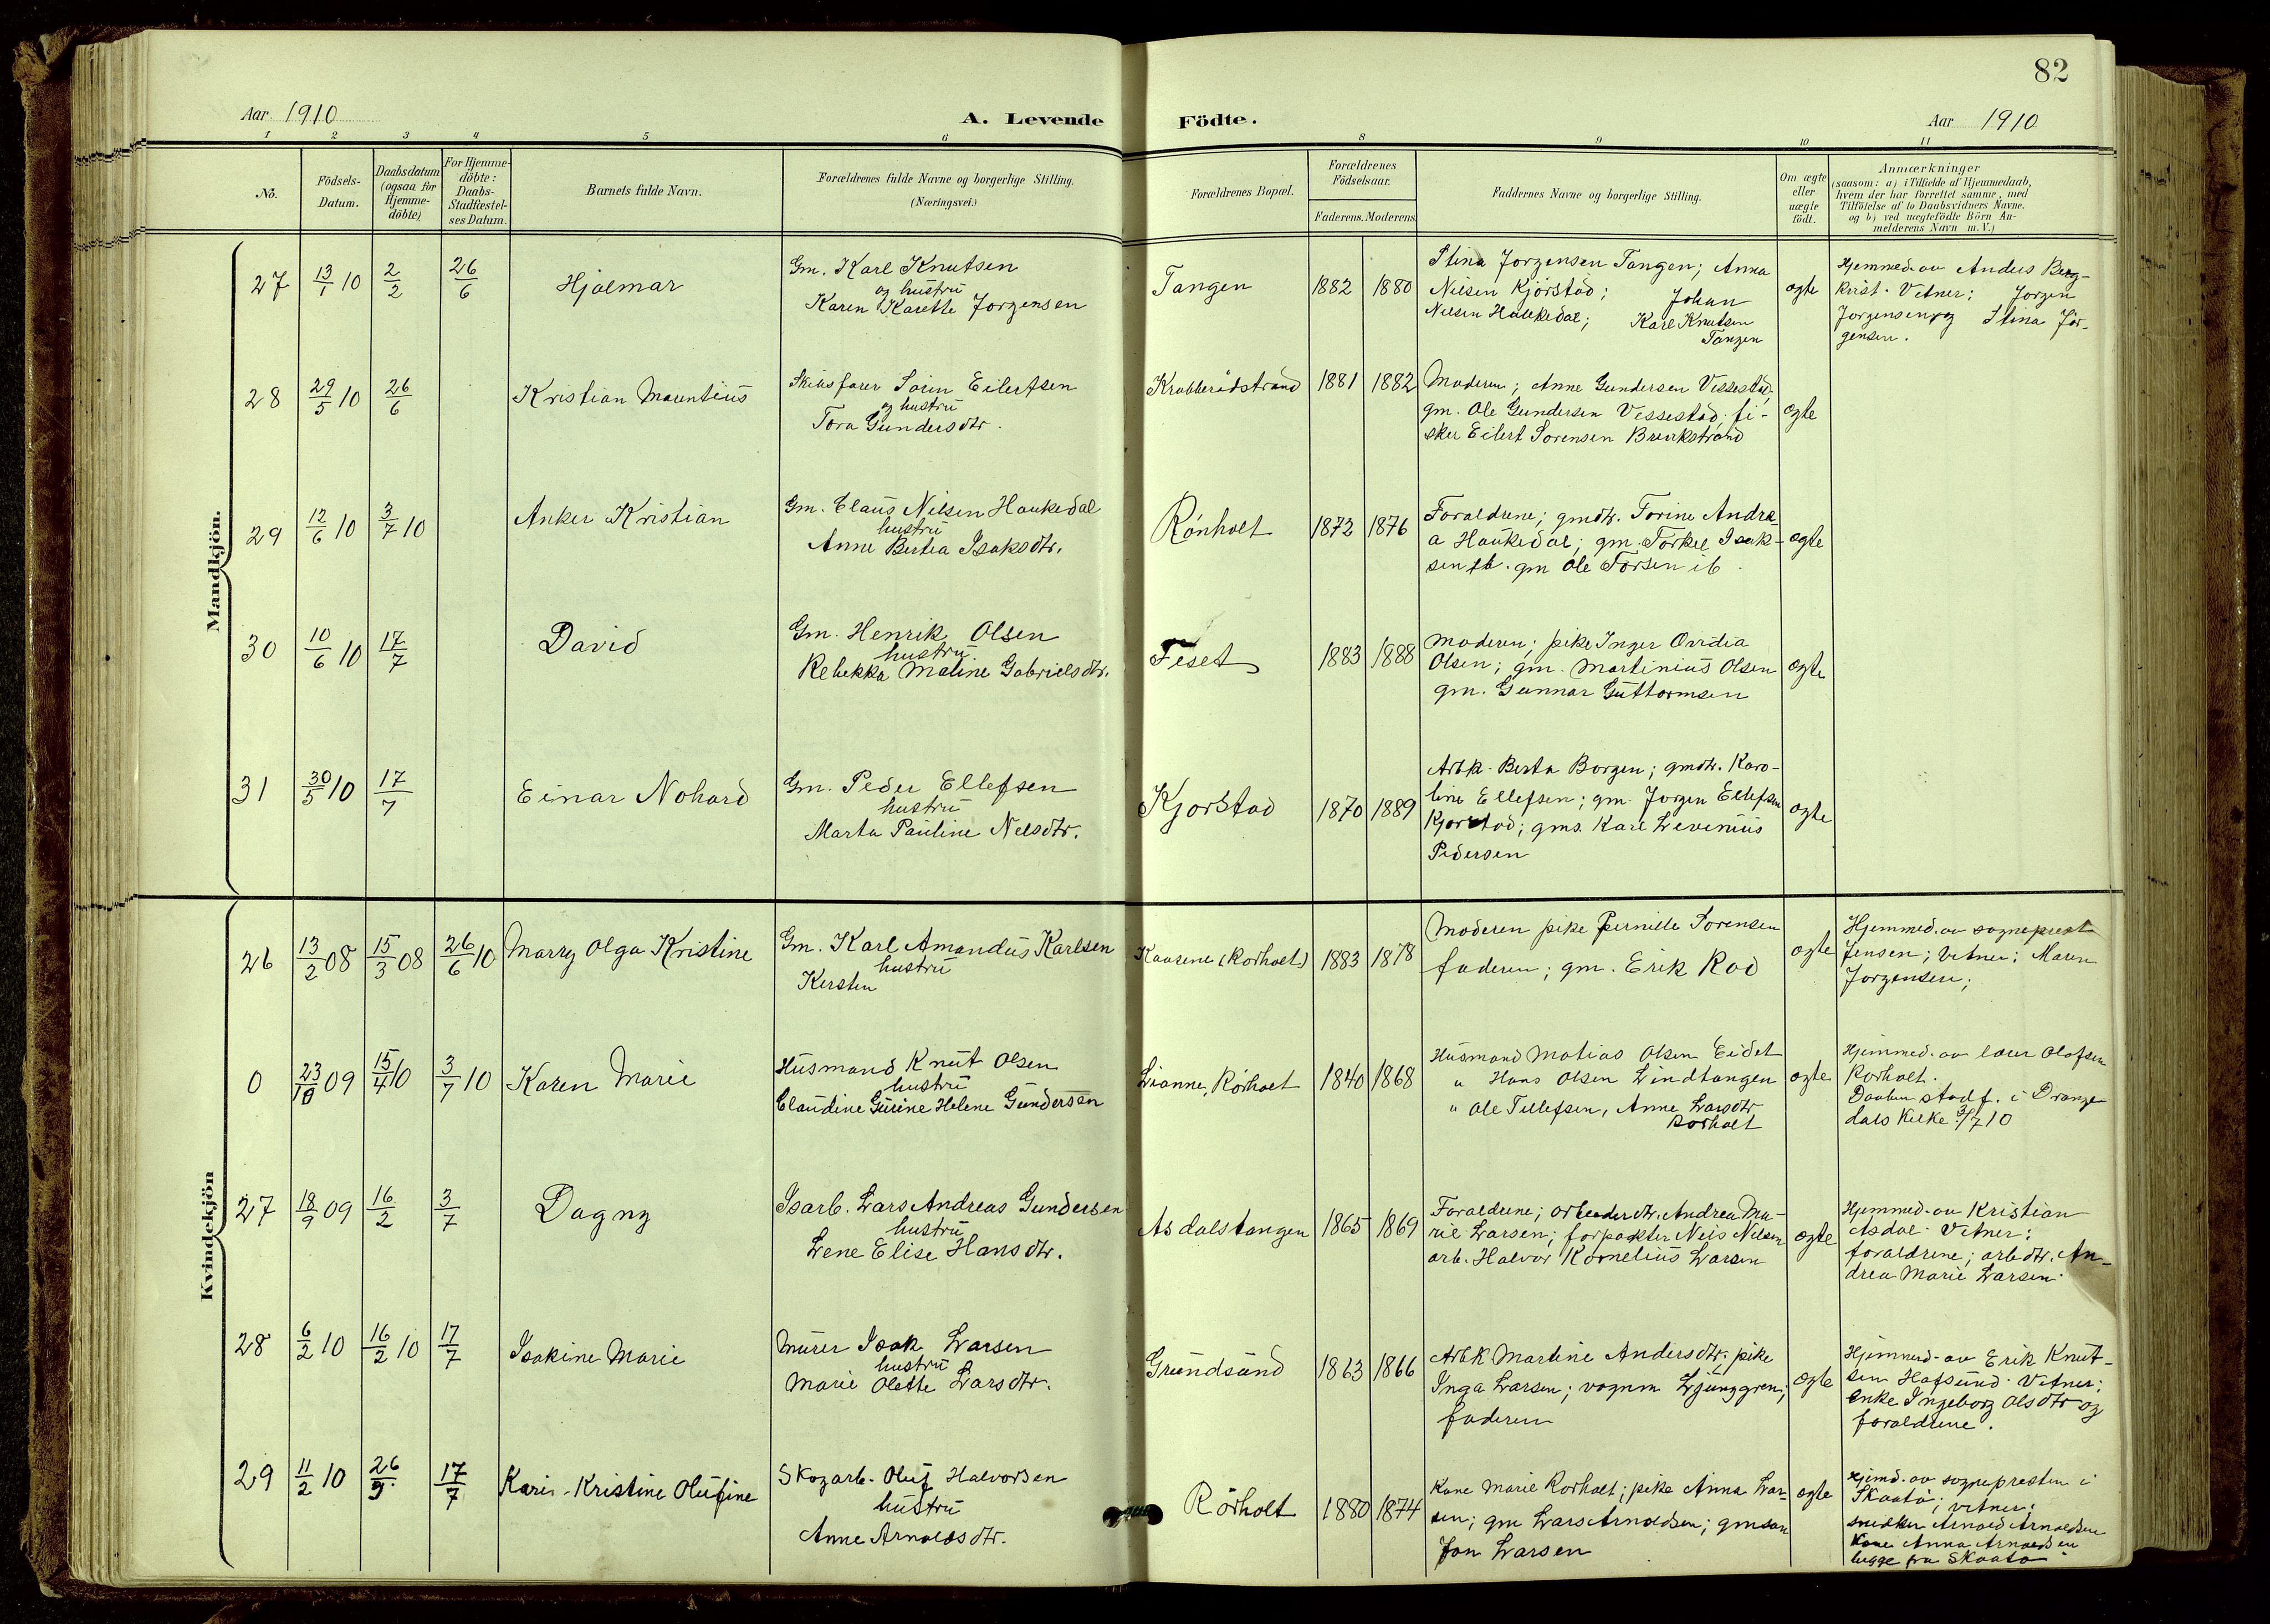 82
Aar 1910
A. Levende Födte.
Aar 1910
1 2 3 4 5 6 8 9 10 11
No.
Födsels-
Datum.
Daabsdatum
(ogsaa for
Hjemme-
döbte)
For Hjemme-
döbte:
Daabs-
Stadfæstel-
ses Datum.
Barnets fulde Navn.
Forældrenes fulde Navne og borgerlige Stilling.
(Næringsvei.)
Forældrenes Bopæl.
Forældrenes
Födselsaar.
Faderens. Moderens
Faddernes Navne og borgerlige Stilling.
Om ægte
eller
uægte
födt.
Anmærkninger
(saasom: a) i Tilfælde af Hjemmedaab,
hvem der har forrettet samme, med
Tilföielse af to Daabsvidners Navne.
og b) ved uægtefödte Börn An-
melderens Navn m.V.)
Mandkjön.
27 13/1 10 2/2 26/6 Hjalmar
Gm. Karl Knutsen
og hustru
Karen Karette Jorgensen
Tangen 1882 1880
Stina Jorgensen Tangen; Anna
Nilsen Kjørstad; Johan
Nilsen Haukedal; Karl Knutsen
Tangen
ægte
Hjemmed. av Anders Berg-
kvist. Vitner: Jorgen
Jorgensen og Stina Jör-
gensen.
28 29/5 10 26/6 Kristian Marentius
Skibsfører Søren Eilertsen
og hustru
Tora Gundersdtr.
Krabberødstrand 1881 1882
Moderen; Anne Gundersen Vissestad;
gm. Ole Gundersen Vissestad. fi-
sker Eilert Sorensen Brevikstrand
ægte
29 12/6 10 3/7 10 Anker Kristian
Gm. Claus Nilsen Haukedal
hustru
Anne Bertea Isaksdtr.
Rönholt 1872 1876
Foraldrene; gmdtr. Torine Andre-
a Haukedal; gm. Torkel Isak-
sen ib. gm Ole Torsen ib.
ægte
30 10/6 10 17/7 David
Gm. Henrik Olsen
hustru
Rebekka Maline Gabrielsdtr.
Feset 1883 1888
Moderen; pike Inger Ovidia
Olsen; gm. Martinius Olsen
gm. Gunnar Guttormsen
ægte
31 30/5 10 17/7 Einar Nohard
Gm. Peder Ellefsen
hustru
Marta Pauline Nelsdtr.
Kjorstad 1870 1889
Arbk. Berta Borgen; gmdtr. Karo-
line Ellefsen; gm. Jorgen Ellefsen
Kjorstad; gms. Karl Levenius
Pedersen
ægte
Kvindekjön
26 13/2 08 15/3 08 26/6 10 Marry Olga Kristine
Gm. Karl Amandus Karlsen
hustru
Kersten
Kaasene (Rorholt) 1883 1878
Moderen pike Pernille Sorensen
faderen; gm. Erik Rod
ægte
Hjemmed. av sogneprest
Jensen; Vitner: Maren
Jorgensen;
0 23/10 09 15/4 10 3/7 10 Karen Marie
Husmand Knut Olsen
hustru
Claudine Gurine Helene Gundersen
Lianne, Rörholt 1840 1868
Husmand Matias Olsen Eidet
" Hans Olsen Lindtangen
" Ole Tellefsen, Anne Larsdtr
Rorholt
ægte
Hjemmed. av lærer Olafsen
Rorholt.
Daaben stadf. i Drange
dals Kirke 3/7 10
27 18/9 09 16/2 3/7 Dagny
Isarb. Lars Andreas Gundersen
hustru
Lene Elise Hansdtr.
Asdalstangen 1865 1869
Foraldrene; arbeiderdtr. Andrea Ma-
rie Larsen; forpakter Neis Nilsen
arb. Halvor Kornelius Larsen
ægte
Hjemmed. av Kristian
Asdal. Vitner:
foraldrene; arbdtr. An-
drea Marie Larsen.
28 6/2 10 16/2 10 17/7 Isakine Marie
Murer Isak Larsen
hustru
Marie Olette Larsdtr.
Grundsund 1863 1866
Arbk Martine Andersdtr. pike
Inga Larsen; vognm Ljunggren;
faderen
ægte
Hjemmed. av Erik Knut-
sen Hafsund. Vitner:
Enke Ingeborg Olsdtr og
foraldrene.
29 11/2 10 26/3 17/7 Karin Kristine Olufine
Skogarb. Oluf Halvorsen
hustru
Anne Arnoldsdtr.
Rörholt 1880 1874
Kone Marie Rorholt; pike Anna Lar-
sen; gm Lars Arnoldsen; gmsøn
Jon Larsen
ægte
Hjemd. av sognepresten i
Skaatö; vitner:
snedker Arnold Arnoldsen
Kone Anna Arnoldsen
begge fra Skaatø.